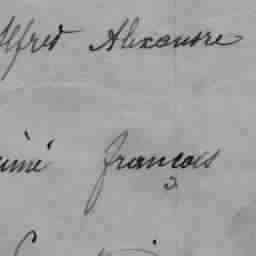 Alfred Alexandre
Aimé françois